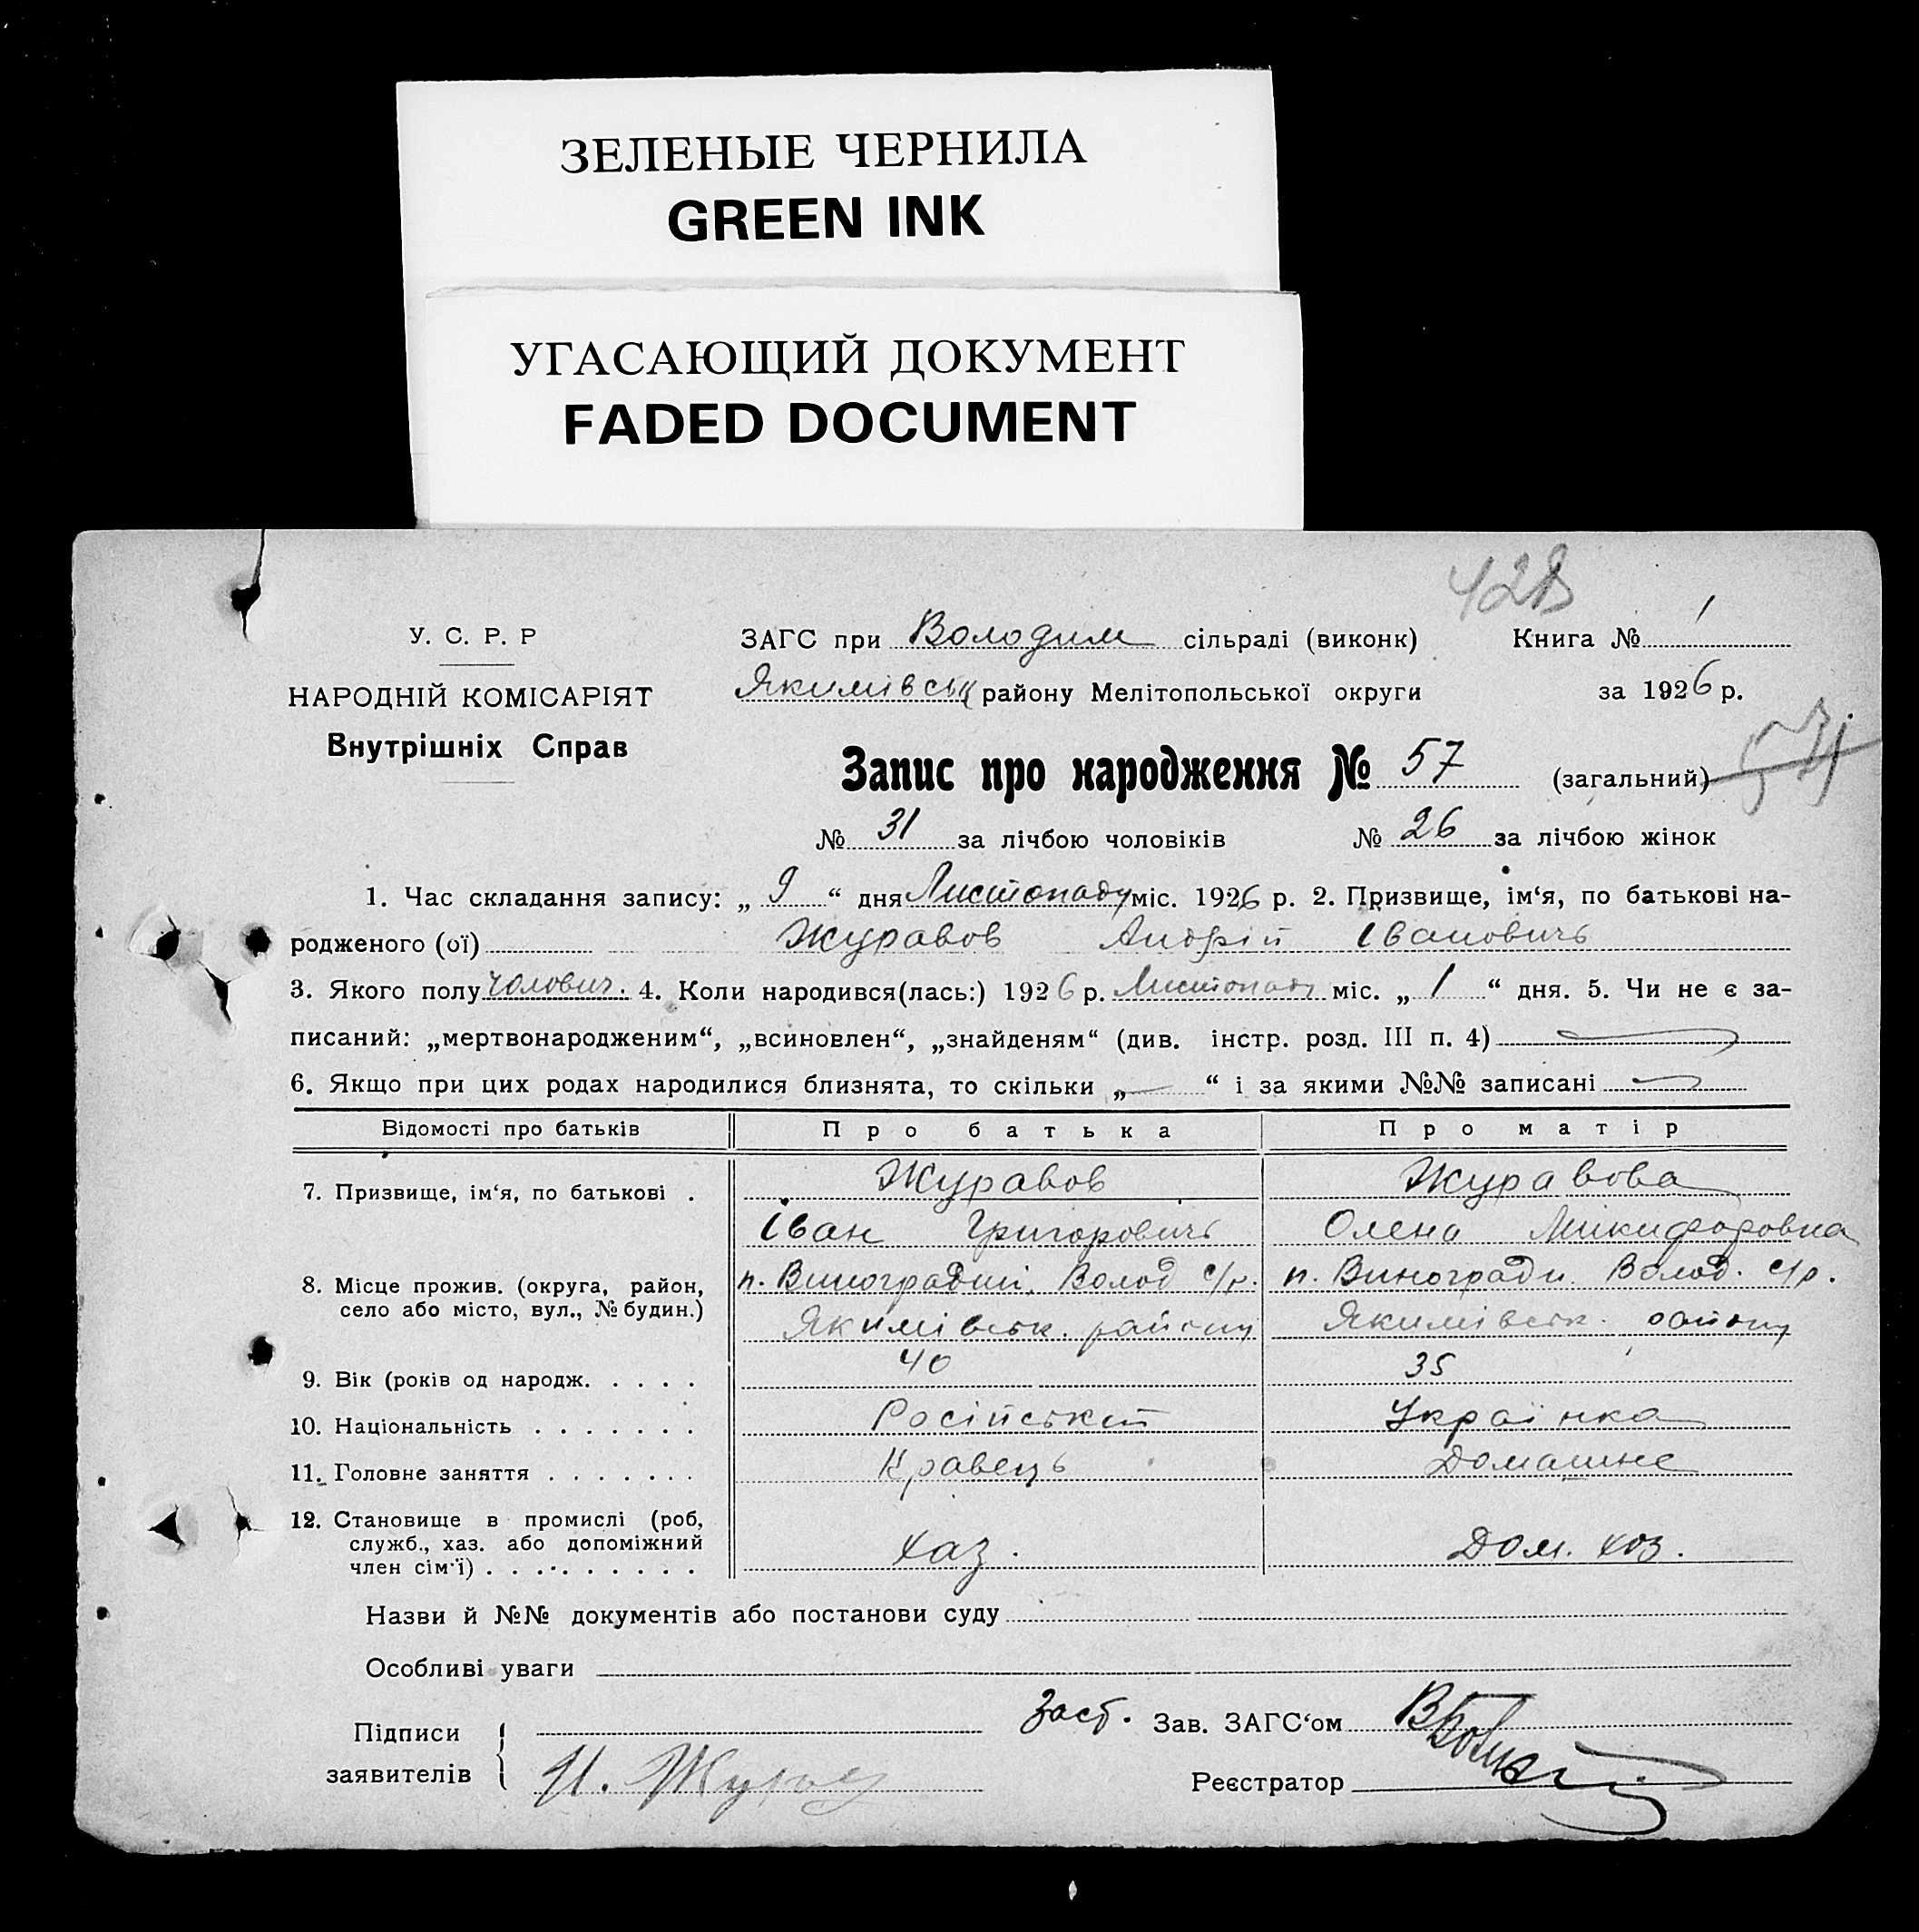 ЗЕЛЕНЫЕ ЧЕРНИЛА
GREEN INK
УГАСАЮЩИЙ ДОКУМЕНТ
FADED DOCUMENT
У. С. Р. Р
НАРОДНІЙ КОМІСАРІЯТ
Внутрішніх Справ
ЗАГС при Володим сільраді (виконк) Книга № 1
Якимівськ району Мелітопольської округи за 1926 р.
Запис про народження № 57 (загальний)
№ 31 за лічбою чоловіків № 26 за лічбою жінок
1. Час складання запису: „ 9 “ дня Листопаду міс. 1926 р. 2. Призвище, ім‘я, по батькові на-
родженого (ої) Журавов Андрій Івановичь
3. Якого полу чолович. 4. Коли народився(лась:) 1926 р. Листопаду міс. „ 1 “ дня. 5. Чи не є за-
писаний: „мертвонародженим“, „всиновлен“, „знайденям“ (див. інстр. розд. III п. 4)
6. Якщо при цих родах народилися близнята, то скільки „ — “ і за якими №№ записані —
Відомості про батьків Про батька Про матір
7. Призвище, ім‘я, по батькові . Журавов Журавова
Іван Григоровичь Олена Микифоровна
8. Місце прожив. (округа, район, п. Виноградні. Волод с/р. п. Виногради. Волод. с/р.
село або місто, вул., № будин.) Якимівськ. району Якимівськ. району
9. Вік (років од народж. . . . . 40 35
10. Національність . . . . . . . Російський Українка
11. Головне заняття . . . . . . . Кравець Домашнє
12. Становище в промислі (роб,
служб., хаз. або допоміжний хаз. Дом. хоз.
член сім‘ї) . . . . . . . . . .
Назви й №№ документів або постанови суду
Особливі уваги
Підписи Заст. Зав. ЗАГС‘ом
заявителів И. Реєстратор